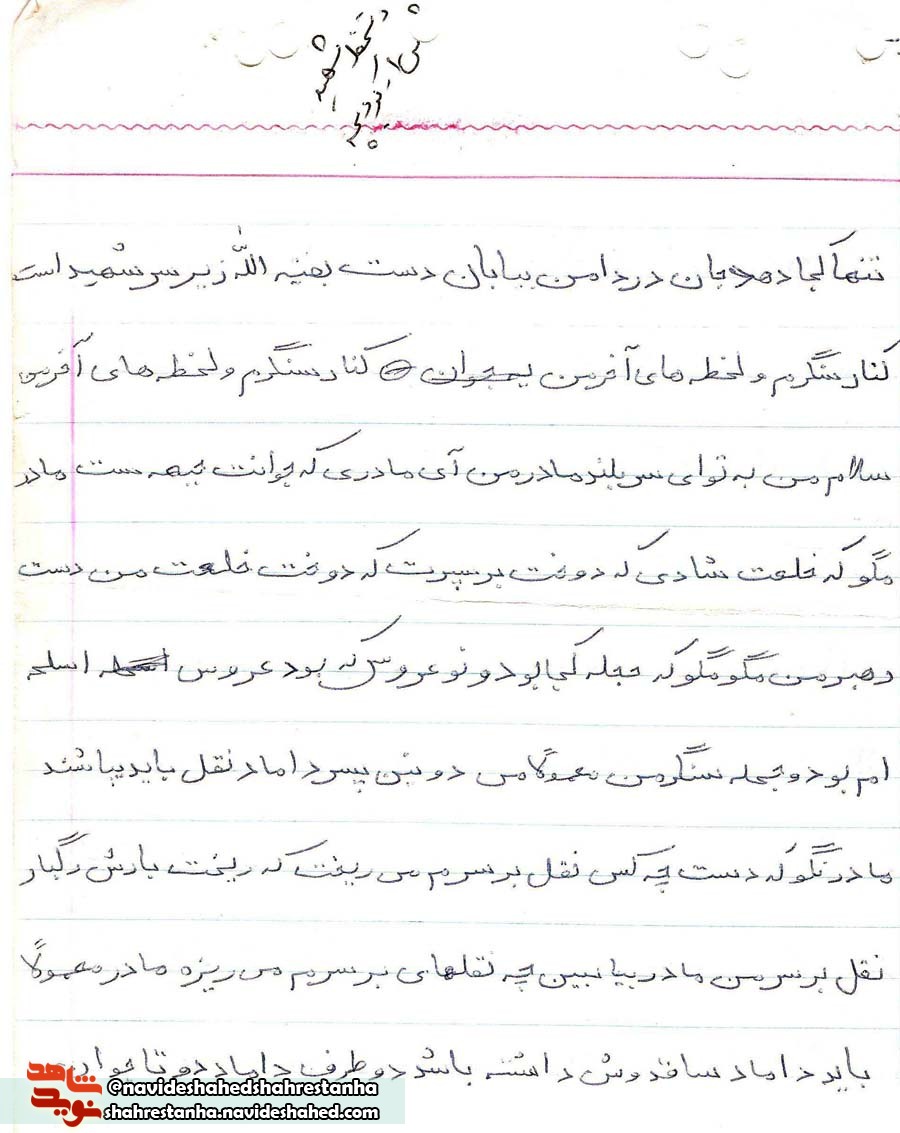 دستخط شهید
تنها کجا دهد جان در دامن بیابان دست بقیه اللّه زیر سر شهید است
کنار سنگرم و لحظه های آخرمن کنار سنگرم و لحظه های آخرمن
سلام من به تو ای سربلند مادر من آی مادری که جوانت جبهه ست مادر
مگو که خلعت شادی که دوخت بر پسرت که دوخت خلعت من دست
رهبر من مگو مگو که حجله کجا بود و نو عروس که بود عروس اسلحه
ام بود و حجله سنگر من معمولاً می دونین پسر داماد نقل باید بپاشند
مادر نگو که دست چه کس نقل بر سرم می ریخت که ریخت بارش رگبار
نقل بر سر من مادر بیا ببین چه نقلهای بر سرم می ریزه مادر معمولاً
باید داماد ساقدوش داشته باشد دو طرف داماد دو تا جوان
شاهد
نوید
@navideshahedshahrestanha
shahrestanha.navideshahed.com